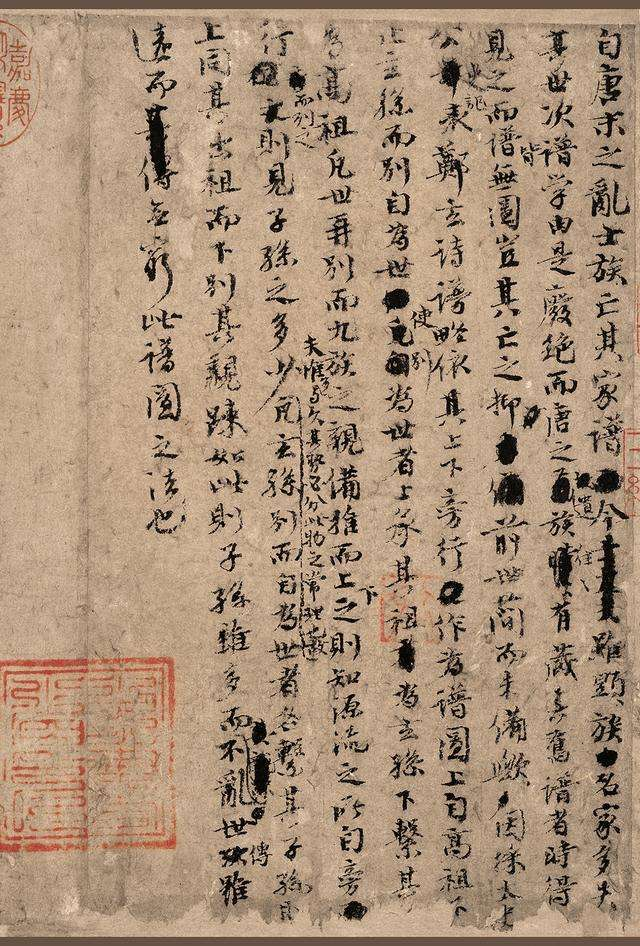 自唐末之亂士族亡其家譜今雖顯族名家多失
其世次譜学由是廢絕而唐之遺族往往有藏其舊譜者時得
見之而譜皆無圖豈其亡之抑前世簡而未備歟因採太史
公史記表鄭玄詩譜略依其上下旁行作為譜圖上自高祖下
止玄孫而別自為世使別為世者上承其祖為玄孫下繫其
為高祖凡世再別而九族之親備推而上下之則知源流之所自旁
行而列之則見子孫之多少夫惟多與久其勢必分此物之常理也凡玄孫別而自為世者各繫其子孫
上同其出祖而下別其親踈如此則子孫雖多而不亂世傳雖
遠而傳無窮此譜圖之法也